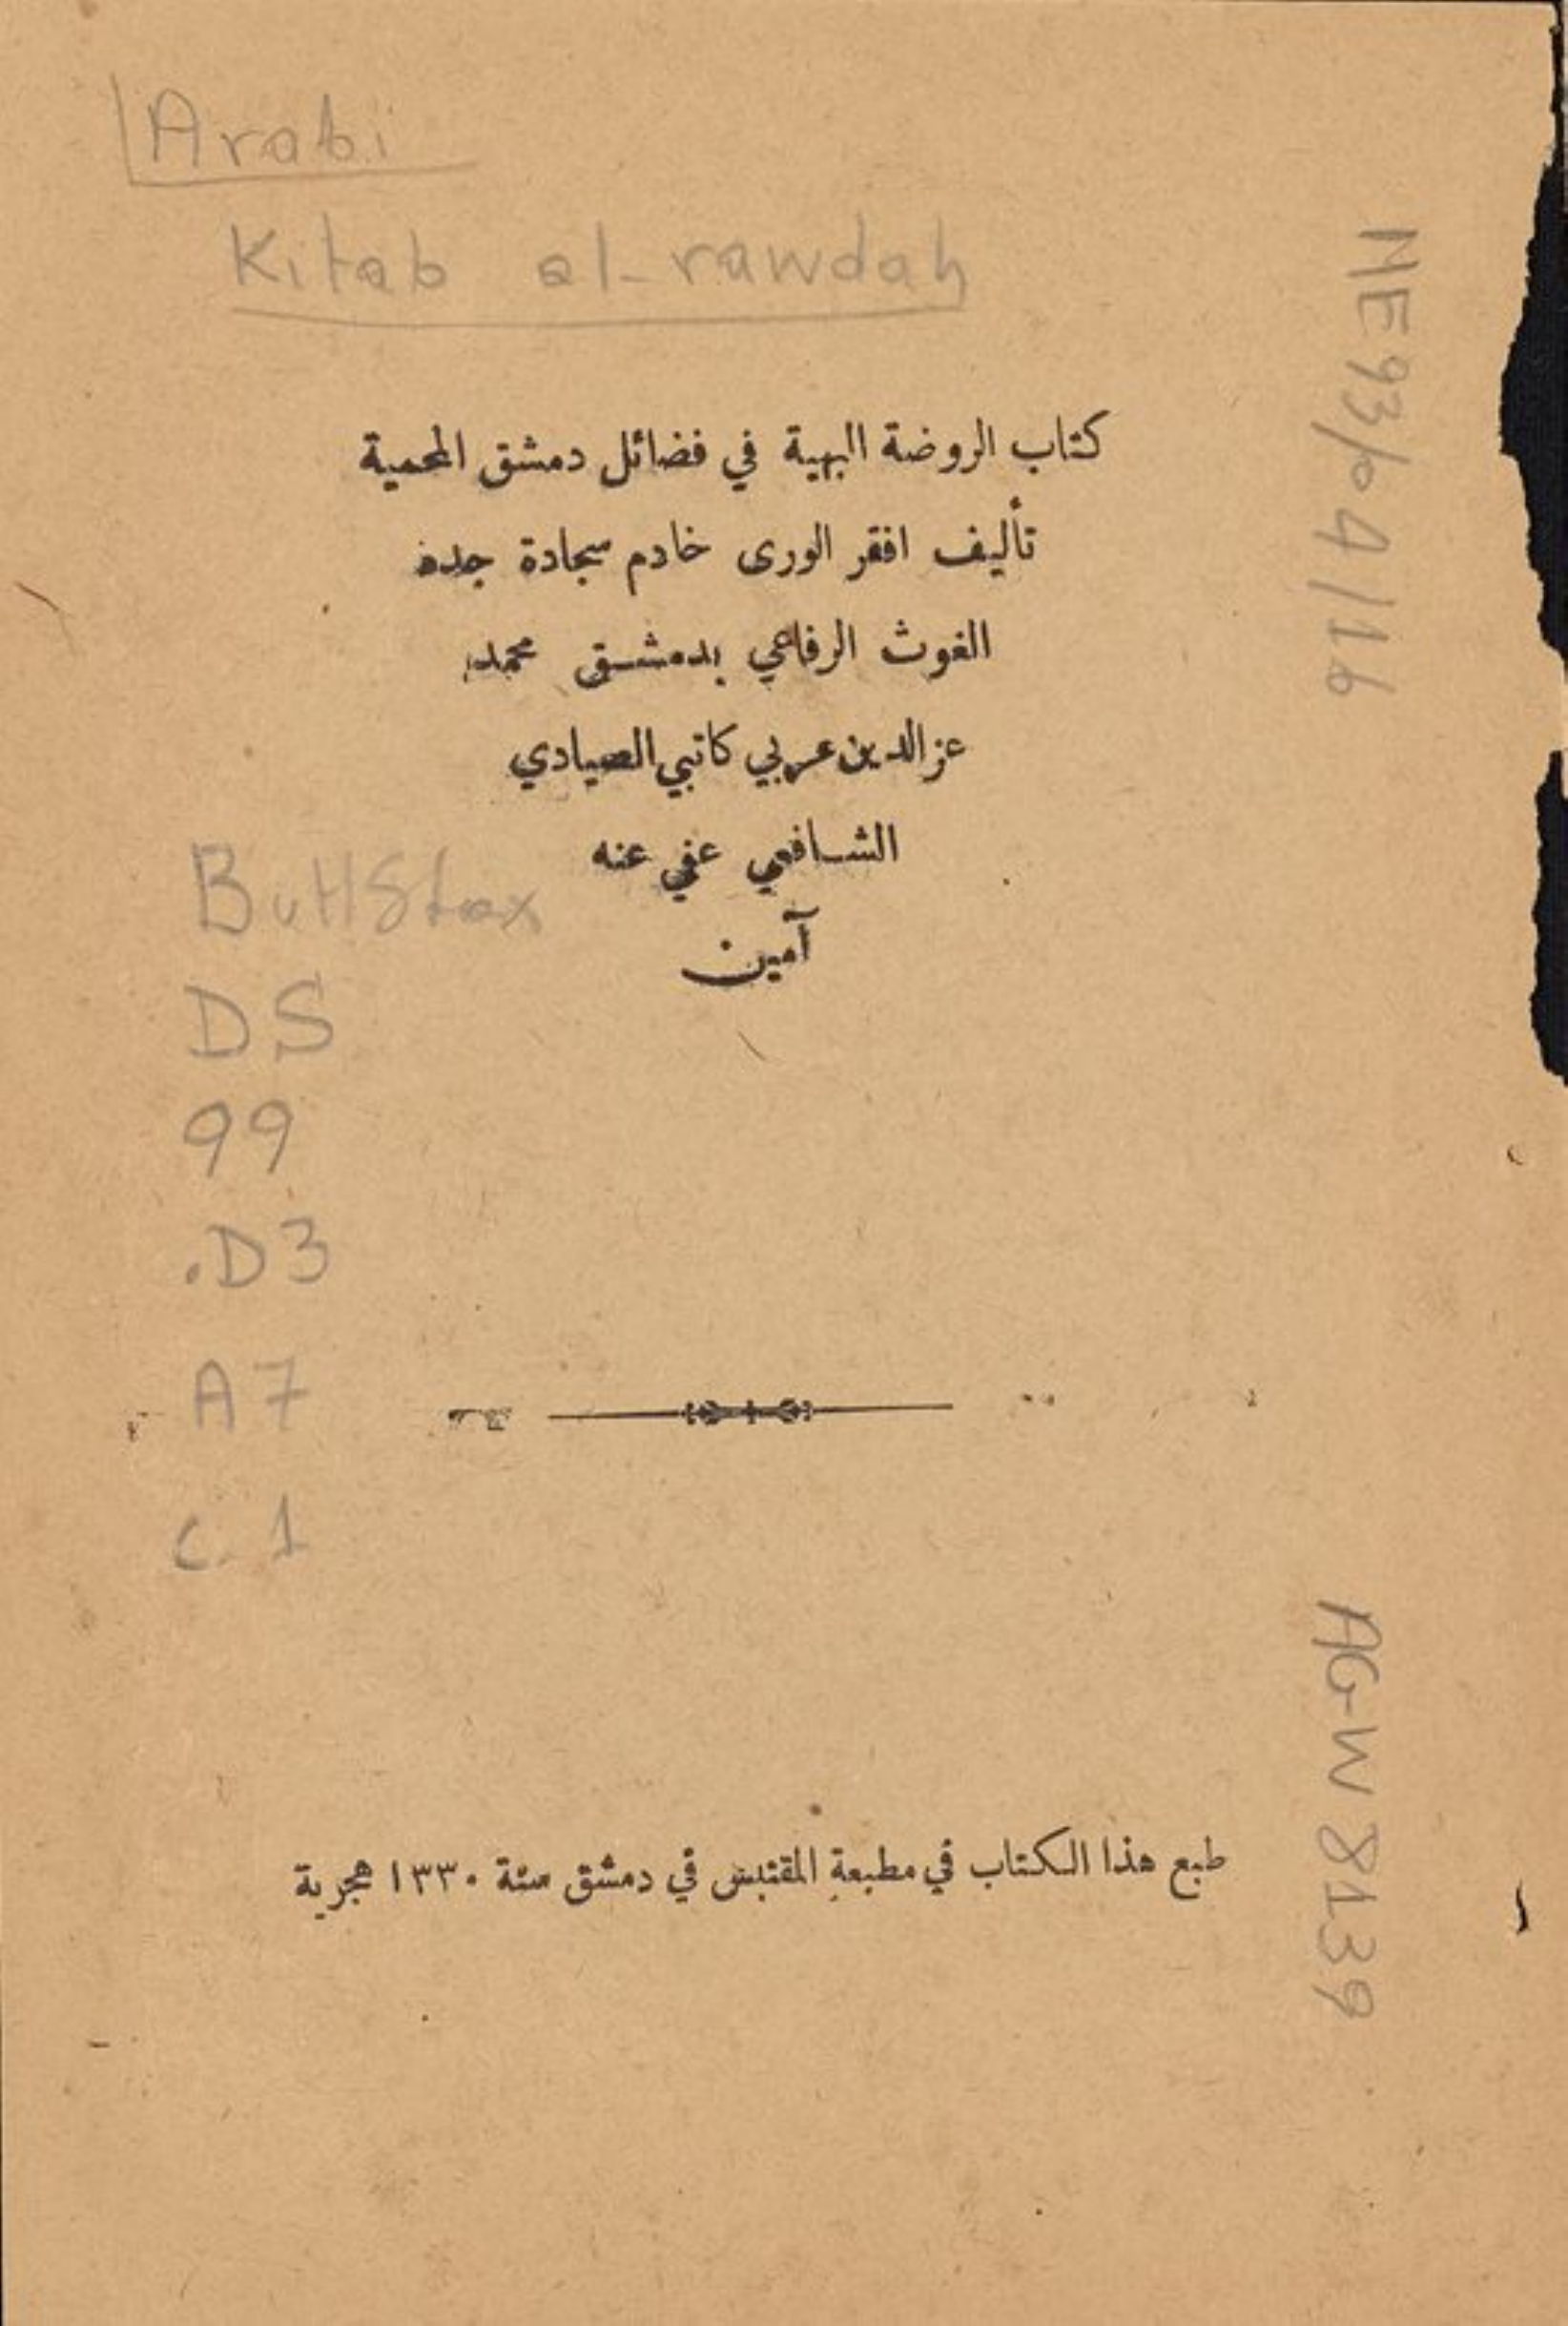 Arabi
Kitab al-rawdah
كتاب الروضة البهية في فضائل دمشق المحمية
تأليف افقر الورى خادم سجادة جده
الغوث الرفاعي بدمشق محمد
عز الدين عربي كاتبي الصيادي
الشافعي عفي عنه
آمين
ButlStax
DS
99
.D3
A7
c. 1
طبع هذا الكتاب في مطبعة المقتبس في دمشق سنة ١٣٣٠ هجرية
NE93/04/16
AG-W 8139